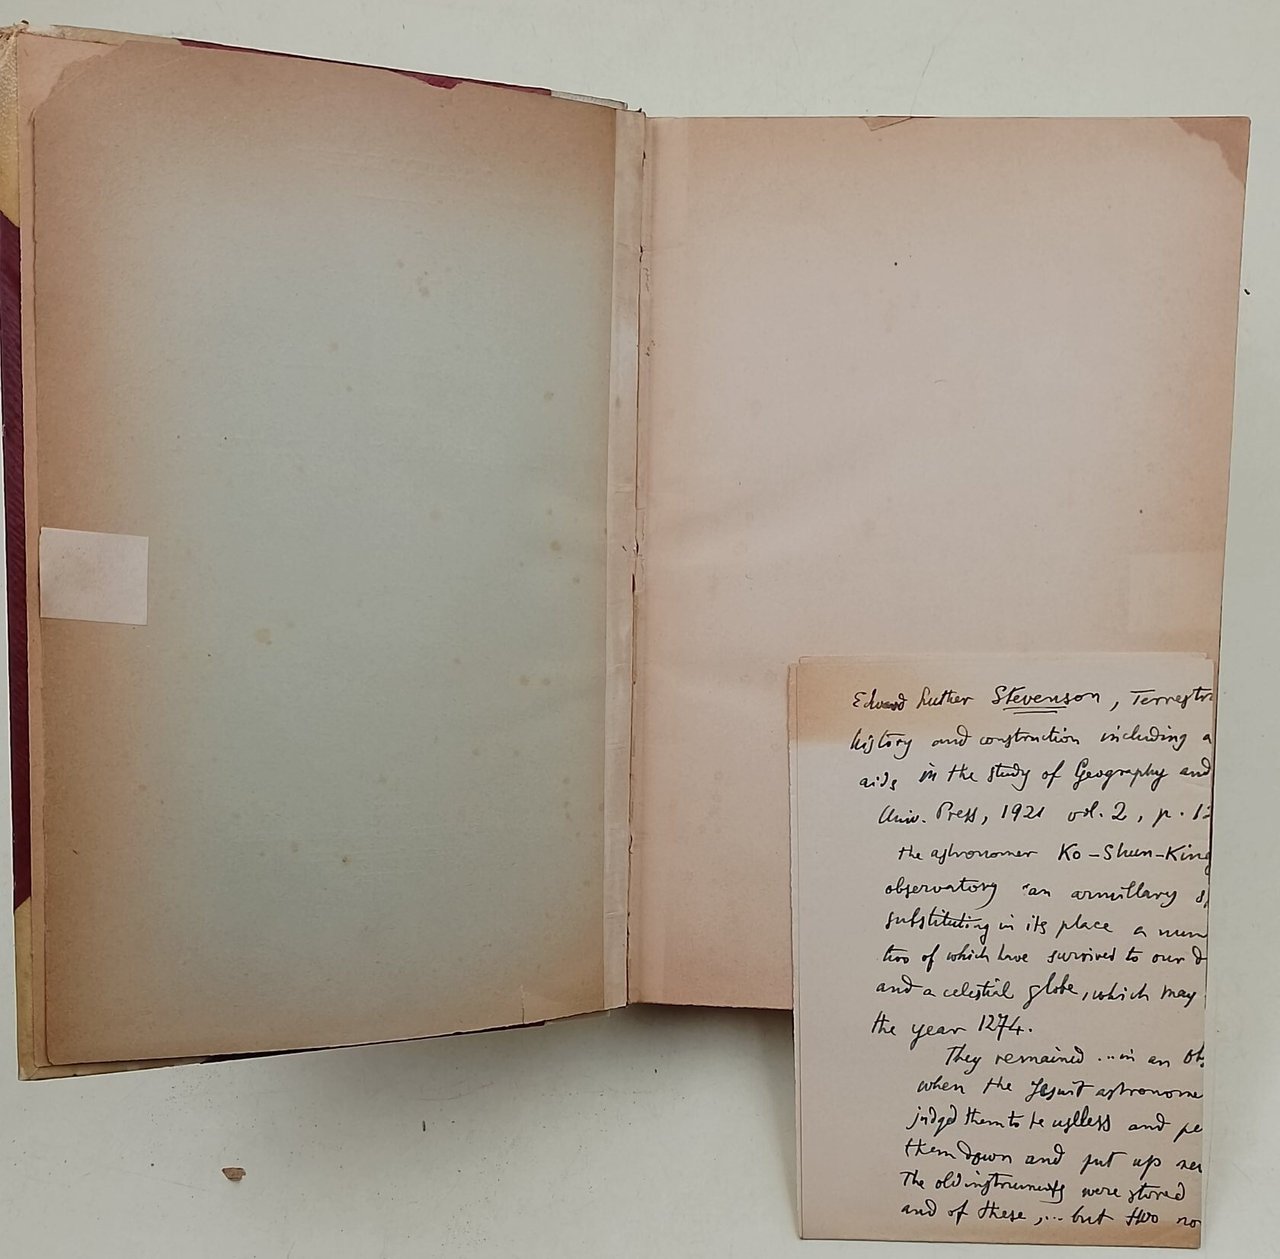 Edward Luther Stevenson, Terrestr
history and construction including a
aids in the study of Geography and
Univ. Press, 1921 vol. 2, p. 12
the astronomer Ko-Shun-King
observatory "an armillary s
substituting in its place a num
two of which have survived to our d
and a celestial globe, which may
the year 1274.
They remained ... in an Ob
when the Jesuit astronome
judged them to be useless and pe
them down and put up
The old instruments were stored
and of these, ... but two no